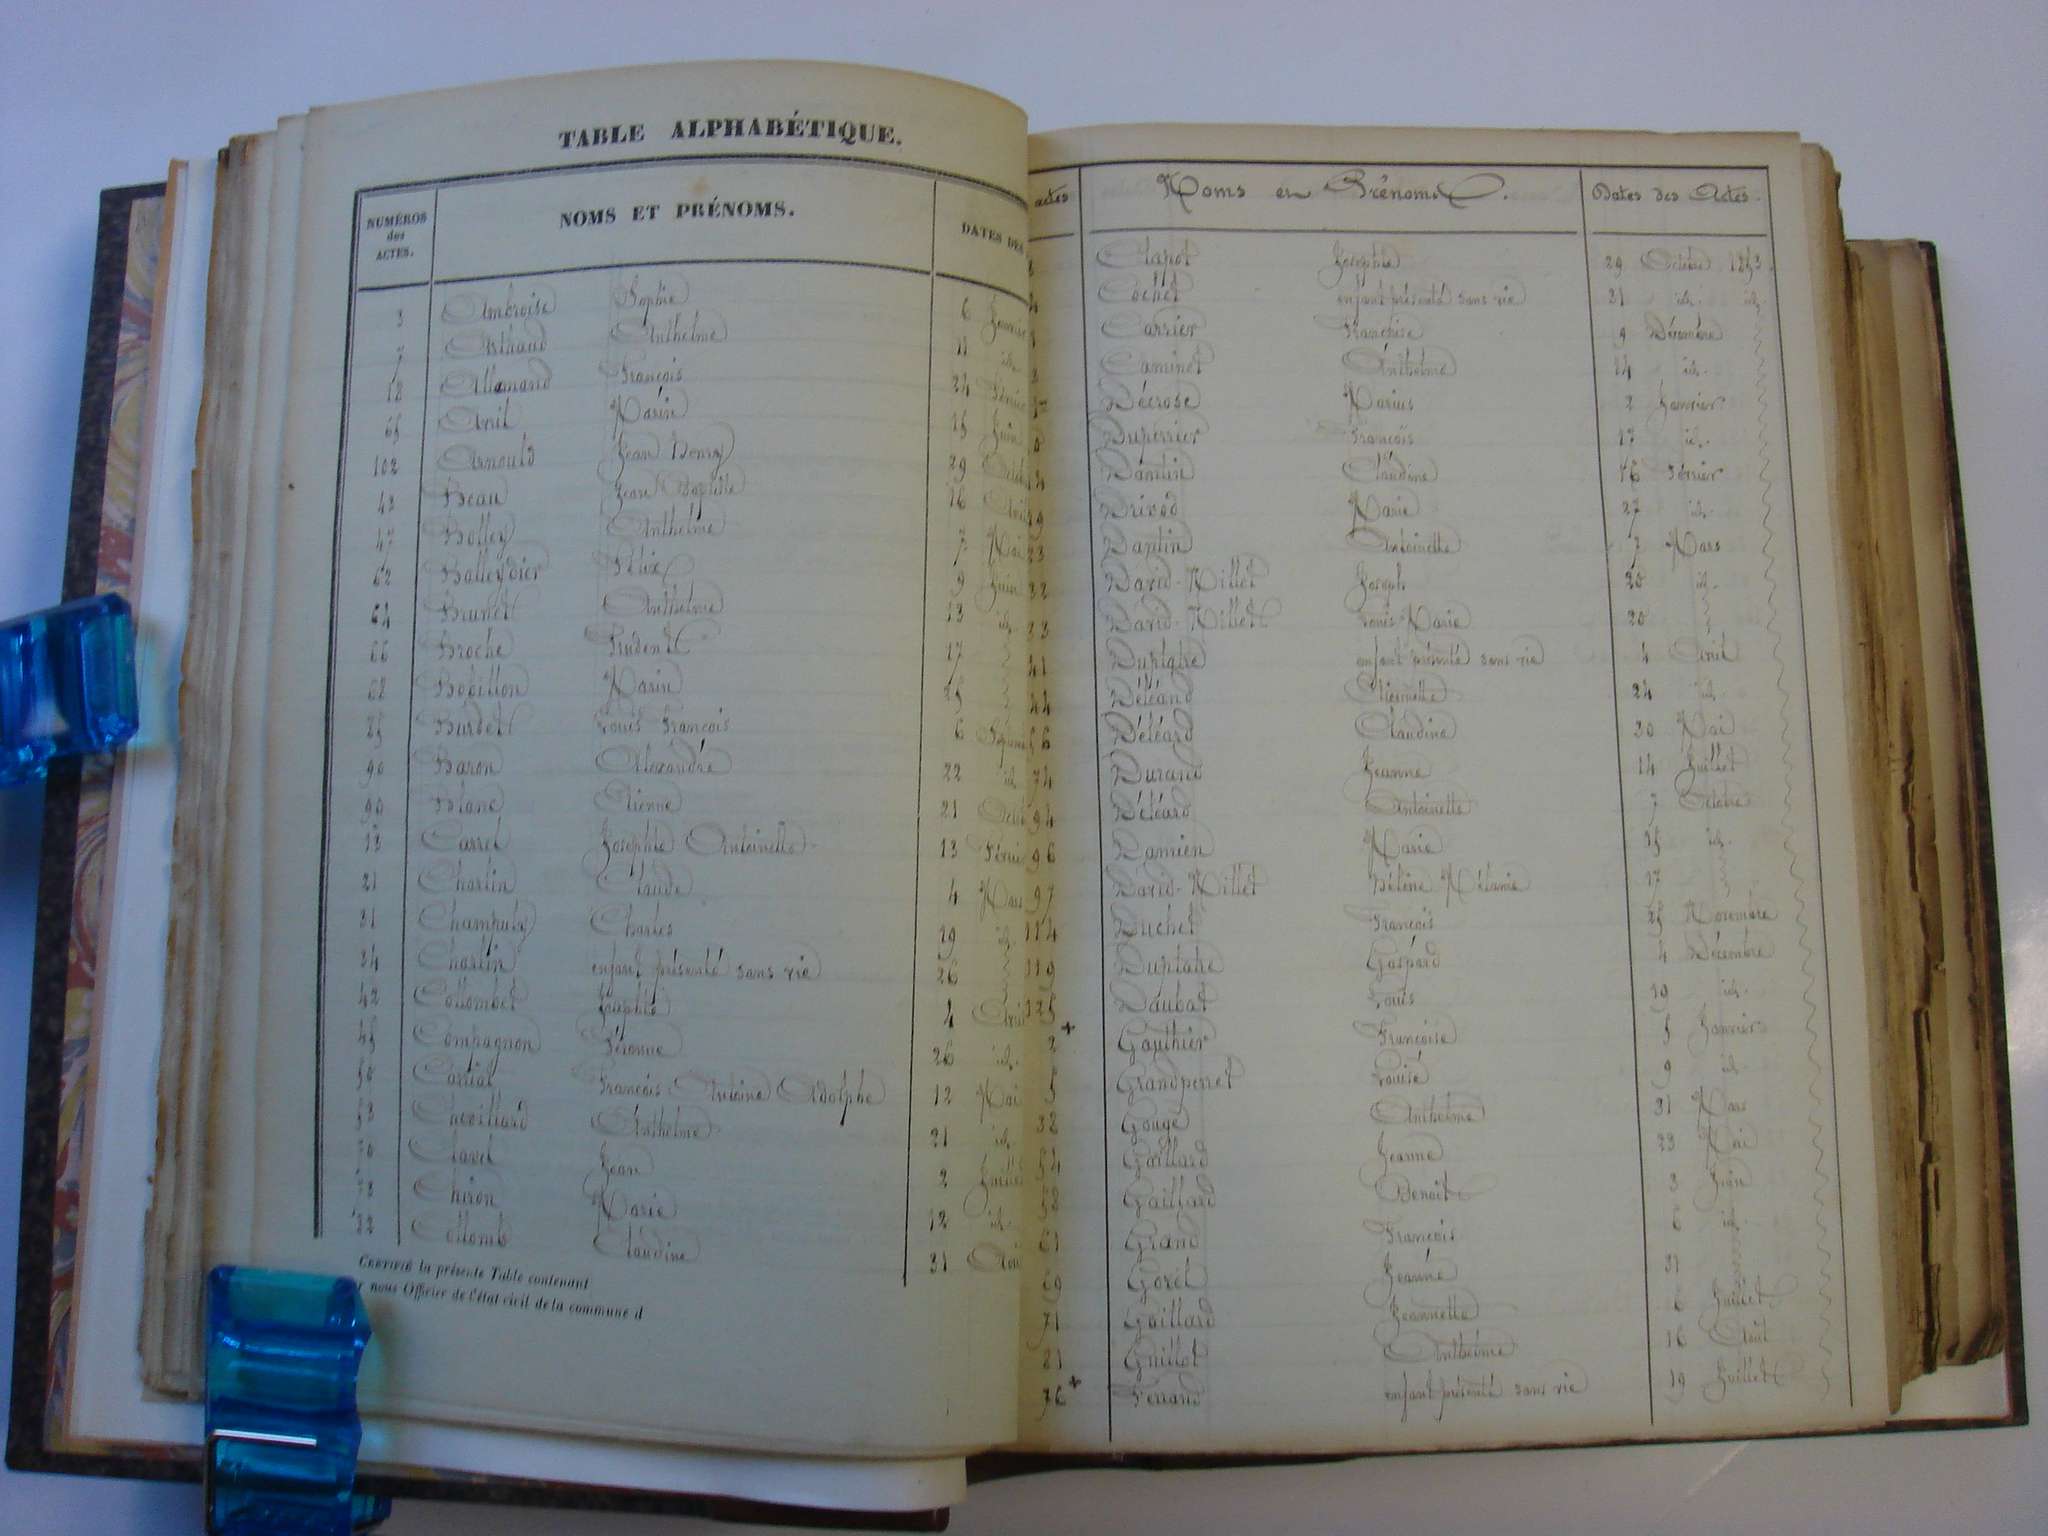 TABLE ALPHABÉTIQUE.
NUMÉROS des ACTES.
NOMS ET PRÉNOMS.
DATES DES
3 Ambroise Sophie 6 Janvier
7 Arthaud Anthelme 11 id.
18 Allemand François 24 Février
65 Avril Marie 15 Juin
102 Arnould Jean Henry 29 Octob
43 Beau Jean Baptiste 16 Avril
47 Bolley Anthelme 7 Mai
62 Balleydier Félix 9 Juin
64 Brunet Anthelme 13 id.
66 Broche Prudent 17
Bobillon Marin 25
Burdet Louis François 6
90 Baron Alexandre 22 id.
Blanc Etienne 21 Octob
13 Carrel Josephte Antoinette 13 Févri
21 Charlin Claude 4 Mars
31 Charles 19 id.
34 Charlin enfant présenté sans vie 26
42 Collombet Josephte 4 Avril
45 Compagnon Péronne 26 id.
50 François Antoine Adolphe 12 Mai
53 Chevillard Anthelme 21 id.
70 Clavel Jean 2 Juillet
73 Chiron Marie 12 id.
82 Collomb Claudine 31 Aou
CERTIFIÉ la présente Table contenant
r nous Officier de l'état civil de la commune d
actes
Noms et Prénoms.
Dates des Actes.
Clapot Josephte 29 Octobre 1843.
Cochet enfant présenté sans vie 31 id. id.
Carrier Françoise 9 Décembre
Caminet Anthelme 14 id.
Décrose Marius 2 Janvier
Duperrier François 17 id.
Dantin Claudine 16 Février
Drivod Marie 27 id.
Dantin Antoinette 7 Mars
32 David-Millet Joseph 20 id.
33 David-Millet Louis Marie 20
41 Duplatre enfant présenté sans vie 4 Avril
44 Déléard Etiennette 24 id.
56 Déléard Claudine 30 Mai
74 Durand Jeanne 14 Juillet
94 Déléard Antoinette 7 Octobre
96 Damien Marie 15 id.
97 David-Millet Hélène Mélanie 17
114 Duchet François 25 Novembre
119 Duplatre Gaspard 4 Décembre
125 Daubat Louis 19 id.
2 + Gauthier Françoise 5 Janvier
5 Grandperret Louise 9 id.
38 Gouge Anthelme 31 Mars
54 Gaillard Jeanne 23 Mai
58 Gaillard Benoit 3 Juin
61 Grand François 6 id.
69 Goret Jeanne 31
71 Gaillard Jeannette 6 Juillet
81 Guillot Anthelme 16 Août
76 + Ferrand enfant présenté sans vie 19 Juillet